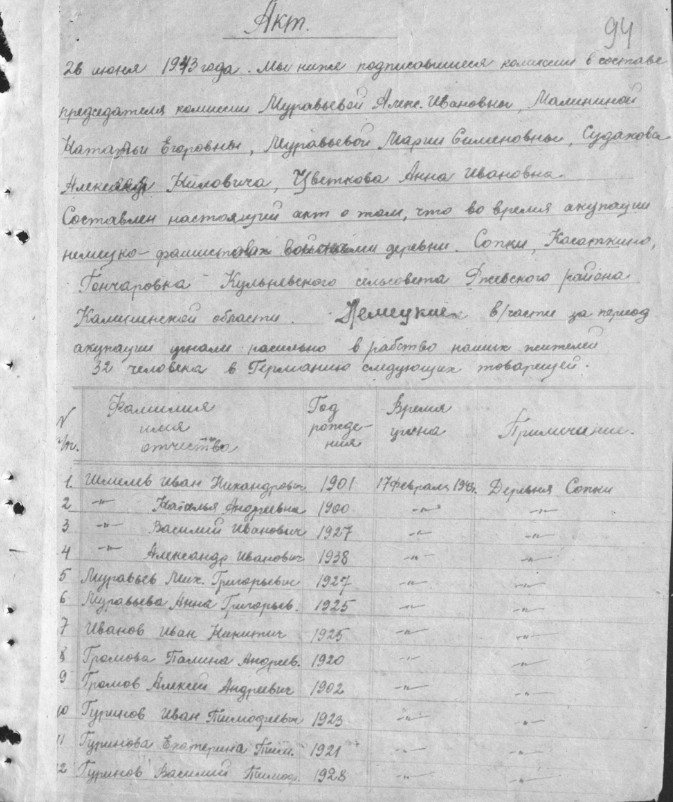 Акт.
94
26 июня 1943 года. Мы ниже подписавшиеся комиссии в составе
председателя комиссии Муравьевой Алекс. Ивановны, Малининой
Натальи Егоровны, Муравьевой Марии Семеновны, Судакова
Александр Ниловича, Цветкова Анна Ивановна.
Составлен настоящий акт о том, что во время акупации
немецко-фашистских войсками деревни. Сопки, Касаткино,
Гончаровка Кульневского сельсовета Ржевского района
Калининской области. Немецкие в/части за период
акупации угнали насильно в рабство наших жителей
32 человека в Германию следующих товарищей.
N п/п. Фамилия имя отчество Год рождения Время угона Примечание.
1. Шмель Иван Никандрович 1901 17 февраля 1943г. Деревня Сопки
2 -"- Наталья Андреевна 1900 -"- -"-
3 -"- Василий Иванович 1927 -"- -"-
4 -"- Александр Иванович 1938 -"- -"-
5 Муравьев Мих. Григорьевич 1927 -"- -"-
6 Муравьева Анна Григорьев. 1925 -"- -"-
7 Иванов Иван Никитич 1925 -"- -"-
8 Громова Палина Андреев. 1920 -"- -"-
9 Громов Алексей Андреевич 1902 -"- -"-
10 Гуринов Иван Тимофеевич 1923 -"- -"-
11 Гуринова Екатерина Тим. 1921 -"- -"-
12 Гуринов Василий Тимоф. 1928 -"- -"-